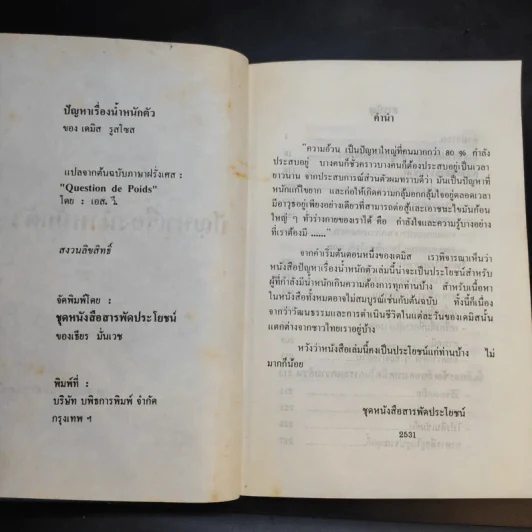 ปัญหาเรื่องน้ำหนักตัว
ของ เดมิส รูสโซส
แปลจากต้นฉบับภาษาฝรั่งเศส :
"Question de Poids"
โดย : เอส.
สงวนลิขสิทธิ์
จัดพิมพ์โดย :
ชุดหนังสือสารพัดประโยชน์
ของเธียร มั่นเวช
พิมพ์ที่ :
บริษัท บพิธการพิมพ์ จำกัด
กรุงเทพ ฯ
คำนำ
"ความอ้วน เป็นปัญหาใหญ่ที่คนมากกว่า 80 % กำลัง
ประสบอยู่ บางคนก็ชั่วคราวบางคนก็ต้องประสบอยู่เป็นเวลา
ยาวนาน จากประสบการณ์ส่วนตัวผมทราบดีว่า มันเป็นปัญหาที่
หนักแก้ไขยาก และก่อให้เกิดความกลุ้มอกกลุ้มใจอยู่ตลอดเวลา
มีอาวุธอยู่เพียงอย่างเดียวที่สามารถต่อสู้และเอาชนะไขมันก้อน
ใหญ่ ๆ ทั่วร่างกายของเราได้ คือ กำลังใจและความรู้บางอย่าง
ที่เราต้องมี ......"
จากคำเริ่มต้นตอนหนึ่งของเดมิส เราพิจารณาเห็นว่า
หนังสือปัญหาเรื่องน้ำหนักตัวเล่มนี้น่าจะเป็นประโยชน์สำหรับ
ผู้ที่กำลังมีน้ำหนักเกินความต้องการทุกท่านบ้าง สำหรับเนื้อหา
ในหนังสือทั้งหมดอาจไม่สมบูรณ์เช่นกับต้นฉบับ ทั้งนี้ก็เนื่อง
จากว่าวัฒนธรรมและการดำเนินชีวิตในแต่ละวันของเดมิสนั้น
แตกต่างจากชาวไทยเราอยู่บ้าง
หวังว่าหนังสือเล่มนี้คงเป็นประโยชน์แก่ท่านบ้าง ไม่
มากก็น้อย
ชุดหนังสือสารพัดประโยชน์
2531